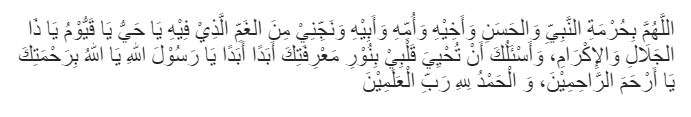 اللَّهُمَّ بِحُرْمَةِ النَّبِيِّ وَالحَسَنِ وَأَخِيْهِ وَأُمِّهِ وَأَبِيْهِ وَنَجِّنِيْ مِنَ الغَمِّ الَّذِيْ فِيْهِ يَا حَيُّ يَا قَيُّوْمُ يَا ذَا
الجَلَالِ وَالإِكْرَامِ، وَأَسْئَلُكَ أَنْ تُحْيِيَ قَلْبِيْ بِنُوْرِ مَعْرِفَتِكَ أَبَدًا أَبَدًا يَا رَسُوْلَ اللهِ يَا اللهُ بِرَحْمَتِكَ
يَا أَرْحَمَ الرَّاحِمِيْنَ، وَ الْحَمْدُ لِلهِ رَبِّ الْعَلَمِيْنَ